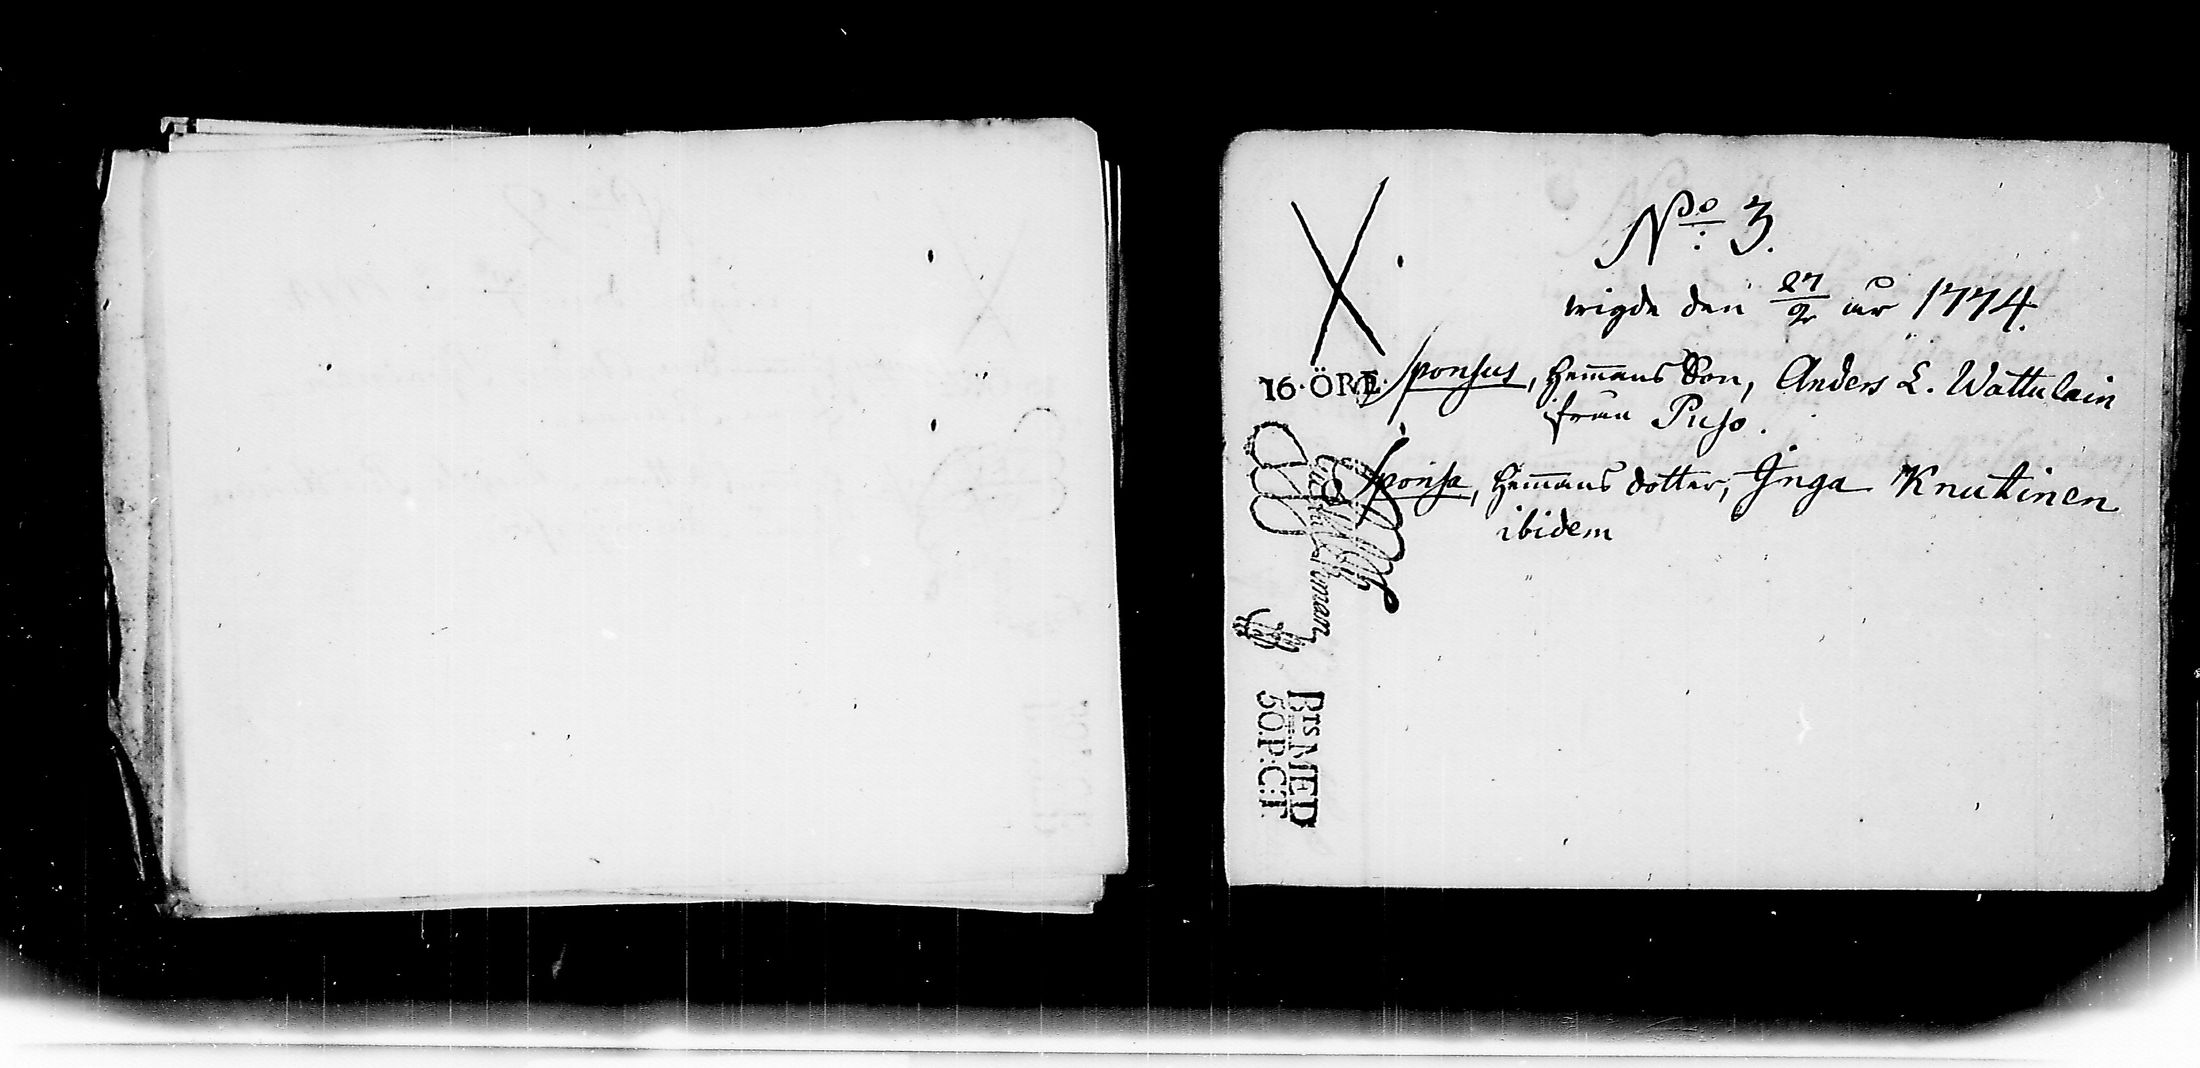 No. 3.
wigde den 27/2 år 1774.
16·ÖRE·
Sponsus, Hem̄ans Son, Anders L. Wattulain
från Puso.
Sponsa, Hem̄ans dotter, Inga Knutinen
ibidem
BTS MED
50:P:C:T